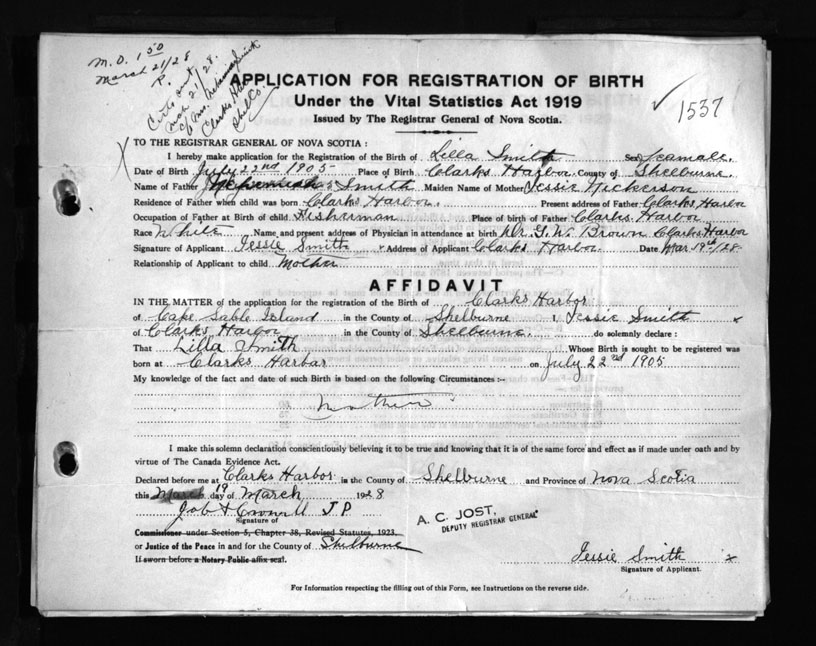 M.O. 1 50
March 21/28
R.
Certs sent
Mch 21/28.
c/o Mrs. Nehemiah Smith
Clarks Har
Shel Co.
APPLICATION FOR REGISTRATION OF BIRTH
Under the Vital Statistics Act 1919
Issued by The Registrar General of Nova Scotia.
✓ 1537
TO THE REGISTRAR GENERAL OF NOVA SCOTIA :
I hereby make application for the Registration of the Birth of Lilla Smith Sex Feamale.
Date of Birth July 22nd 1905 Place of Birth Clarks Harbor County of Shelburne.
Name of Father Nehemiah Smith Maiden Name of Mother Jessie Nickerson
Residence of Father when child was born Clarks Harbor. Present address of Father Clarks Harbor
Occupation of Father at Birth of child Fisharman Place of birth of Father Clarks Harbor
Race White Name, and present address of Physician in attendance at birth Dr. G. W. Brown Clarks Harbor
Signature of Applicant Jessie Smith Address of Applicant Clarks Harbor Date Mar 19th/28
Relationship of Applicant to child Mother
AFFIDAVIT
IN THE MATTER of the application for the registration of the Birth of Clarks Harbor
of Cape Sable Island in the County of Shelburne I, Jessie Smith x
of Clarks Harbor in the County of Shelburne. do solemnly declare :
That Lilla Smith Whose Birth is sought to be registered was
born at Clarks Harbor on July 22nd 1905
My knowledge of the fact and date of such Birth is based on the following Circumstances :-
Mother
I make this solemn declaration conscientiously believing it to be true and knowing that it is of the same force and effect as if made under oath and by
virtue of The Canada Evidence Act.
Declared before me at Clarks Harbor in the County of Shelburne and Province of Nova Scotia
this 19 day of March 1928
Job H Crowell J P
Signature of
Commissioner under Section 5, Chapter 38, Revised Statutes, 1923.
or Justice of the Peace in and for the County of Shelburne
If sworn before a Notary Public affix seal.
A. C. JOST,
DEPUTY REGISTRAR GENERAL
Jessie Smith x
Signature of Applicant.
For Information respecting the filling out of this Form, see Instructions on the reverse side.